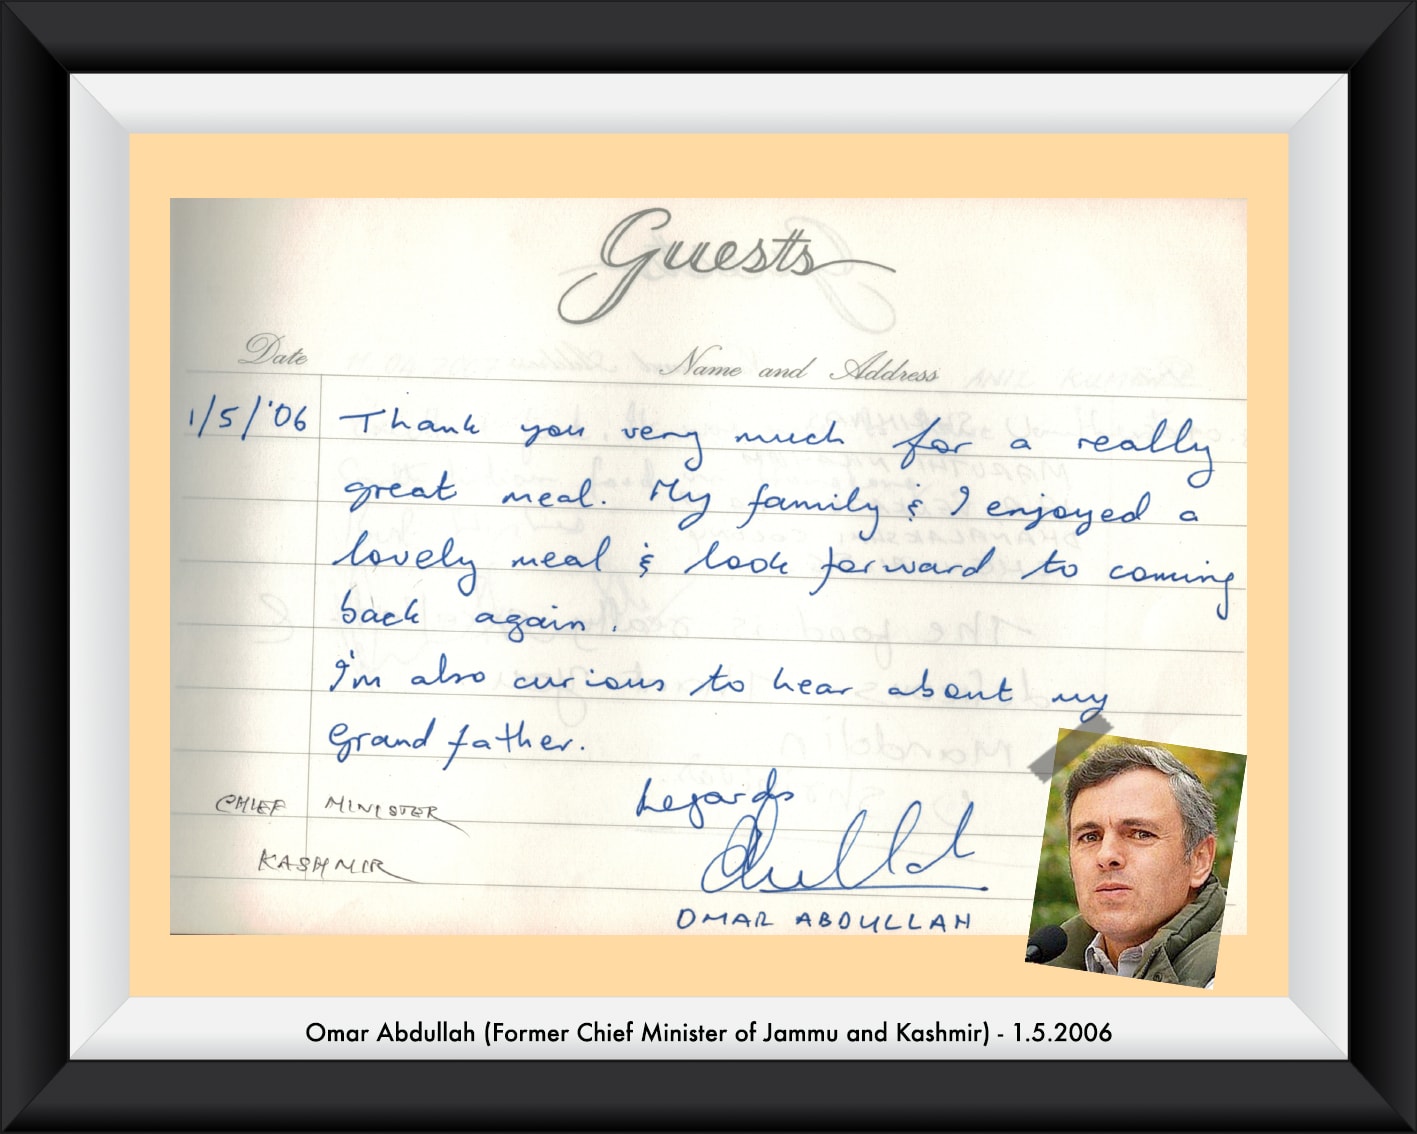 Guests
Date Name and Address
1/5/'06 Thank you very much for a really
great meal. My family & I enjoyed a
lovely meal & look forward to coming
back again.
I'm also curious to hear about my
Grand father.
Regards
OMAR ABDULLAH
CHIEF MINISTER
KASHMIR
Omar Abdullah (Former Chief Minister of Jammu and Kashmir) - 1.5.2006